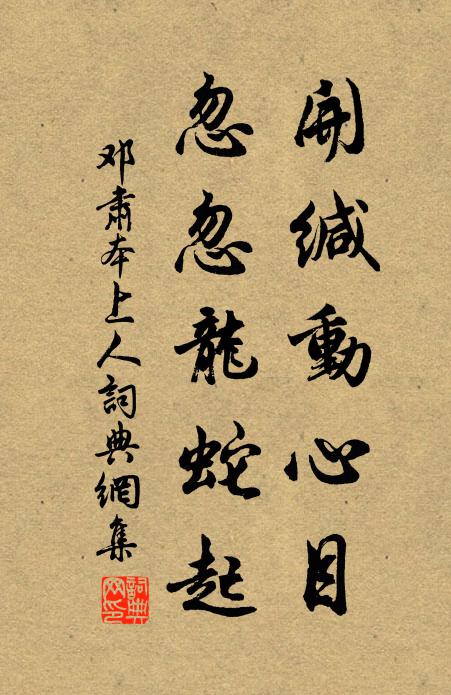 開缄動心目
忽忽龍蛇起
邓肅本上人詞典網集
詞典网印